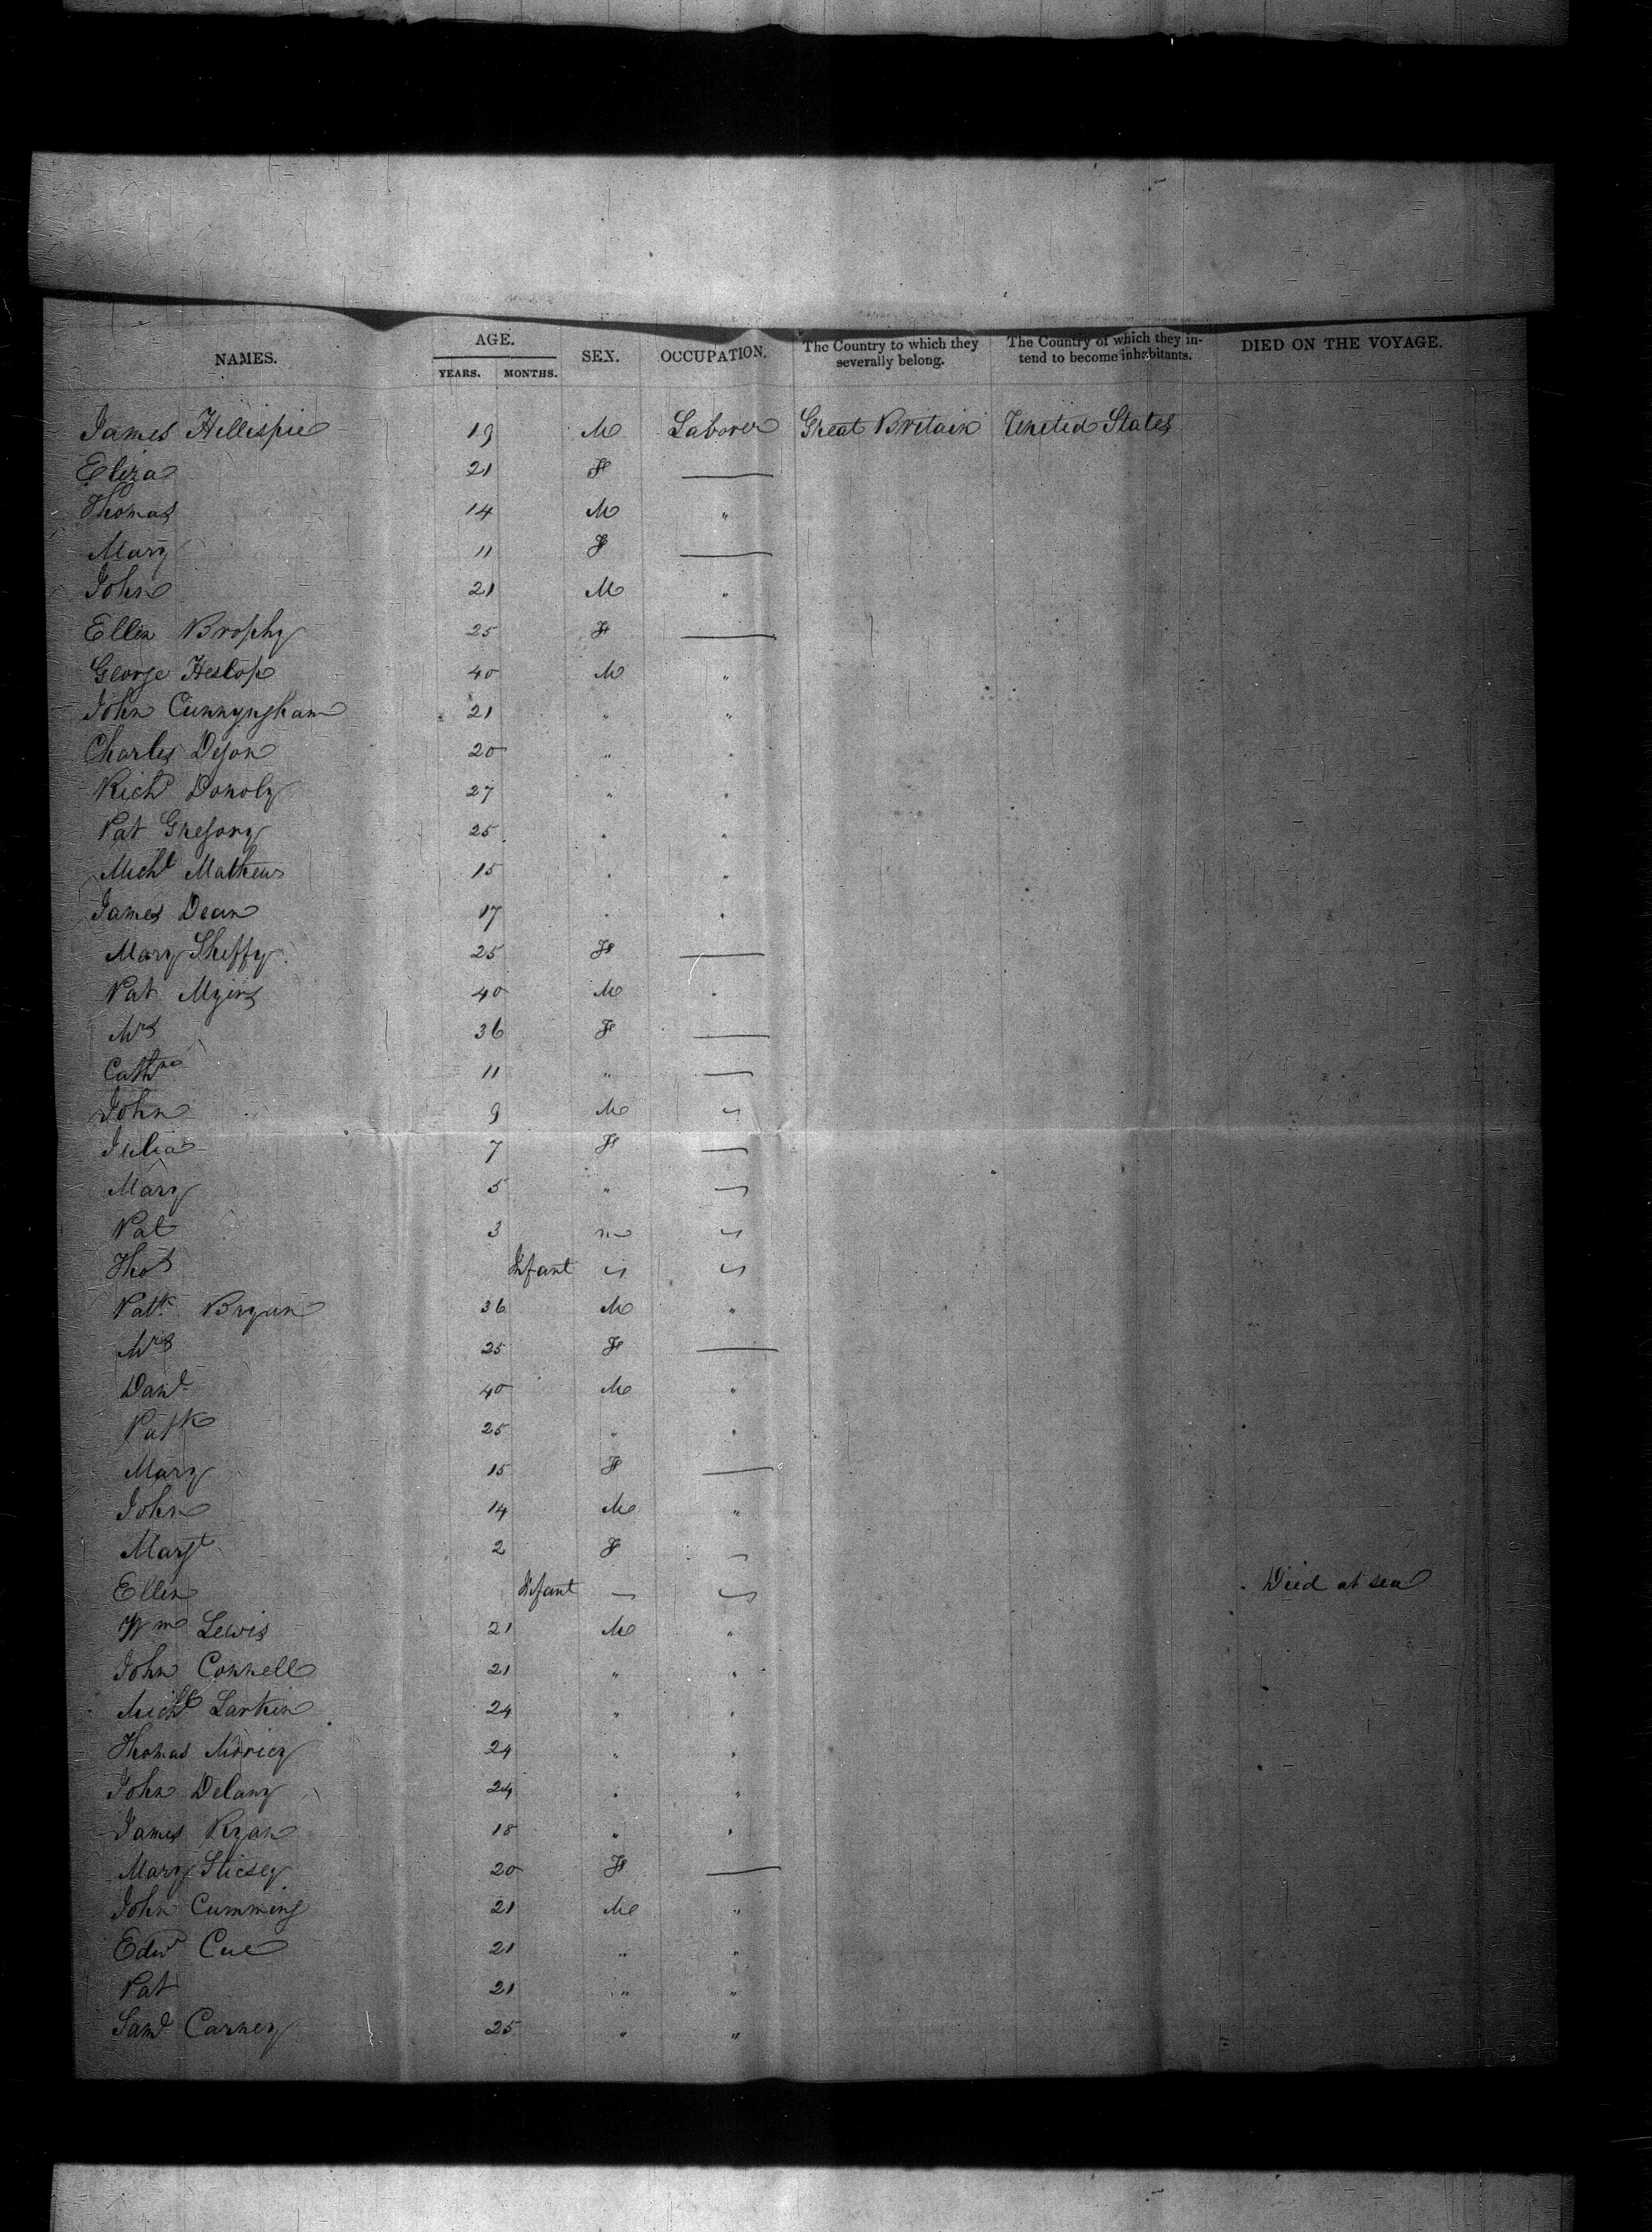 NAMES. AGE. SEX. OCCUPATION. The Country to which they severally belong. The Country of which they intend to become inhabitants. DIED ON THE VOYAGE.
YEARS. MONTHS.
James Hillispie 19 M Laborer Great Britain United States
Eliza 21 F —
Thomas 14 M "
Mary 11 F —
John 21 M "
Ellen Brophy 25 F —
George Heslop 40 M "
John Cunnyngham 21 " "
Charles Dyon 20 " "
Richd Donoly 27 " "
Pat Gregory 25 " "
Michl Mathews 15 " "
James Dean 17 " "
Mary Sheffy 25 F —
Pat Myers 40 M "
Mrs 36 F —
Cathne 11 " —
John 9 M "
Julia 7 F —
Mary 5 " —
Pat 3 m "
Thos Infant " "
Patk Bryan 36 M "
Mrs 25 F —
Danl 40 M "
Patk 25 " "
Mary 15 F —
John 14 M "
Margt 2 F —
Ellen Infant — " Died at sea
Wm Lewis 21 M "
John Connell 21 " "
Michl Larkin 24 " "
Thomas 24 " "
John Delany 24 " "
James Ryan 18 " "
Mary 20 F —
John Cumming 21 M "
Edwd Cue 21 " "
Pat 21 " "
Saml Carney 25 " "